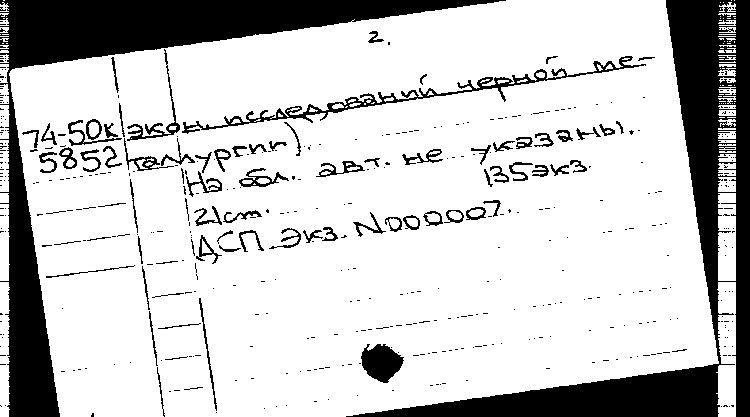 2.
74-50к экон. исследований черной ме-
5852 таллургии).
На обл. авт. не указаны.
21 ст. 135 экз.
ДСП. Экз. N000007.